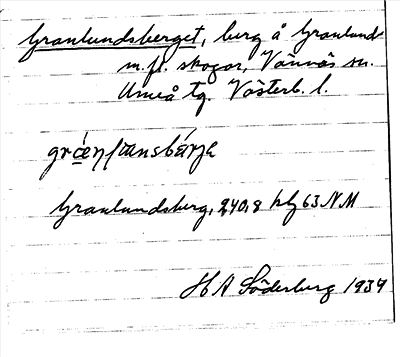 Granlundsberget, berg å Granlunds
m. fl. skogar, Vännäs sn.
Umeå tg. Västerb. l.
Granlundsberg, 240,8 kbl 63 NM
H A Söderberg 1934